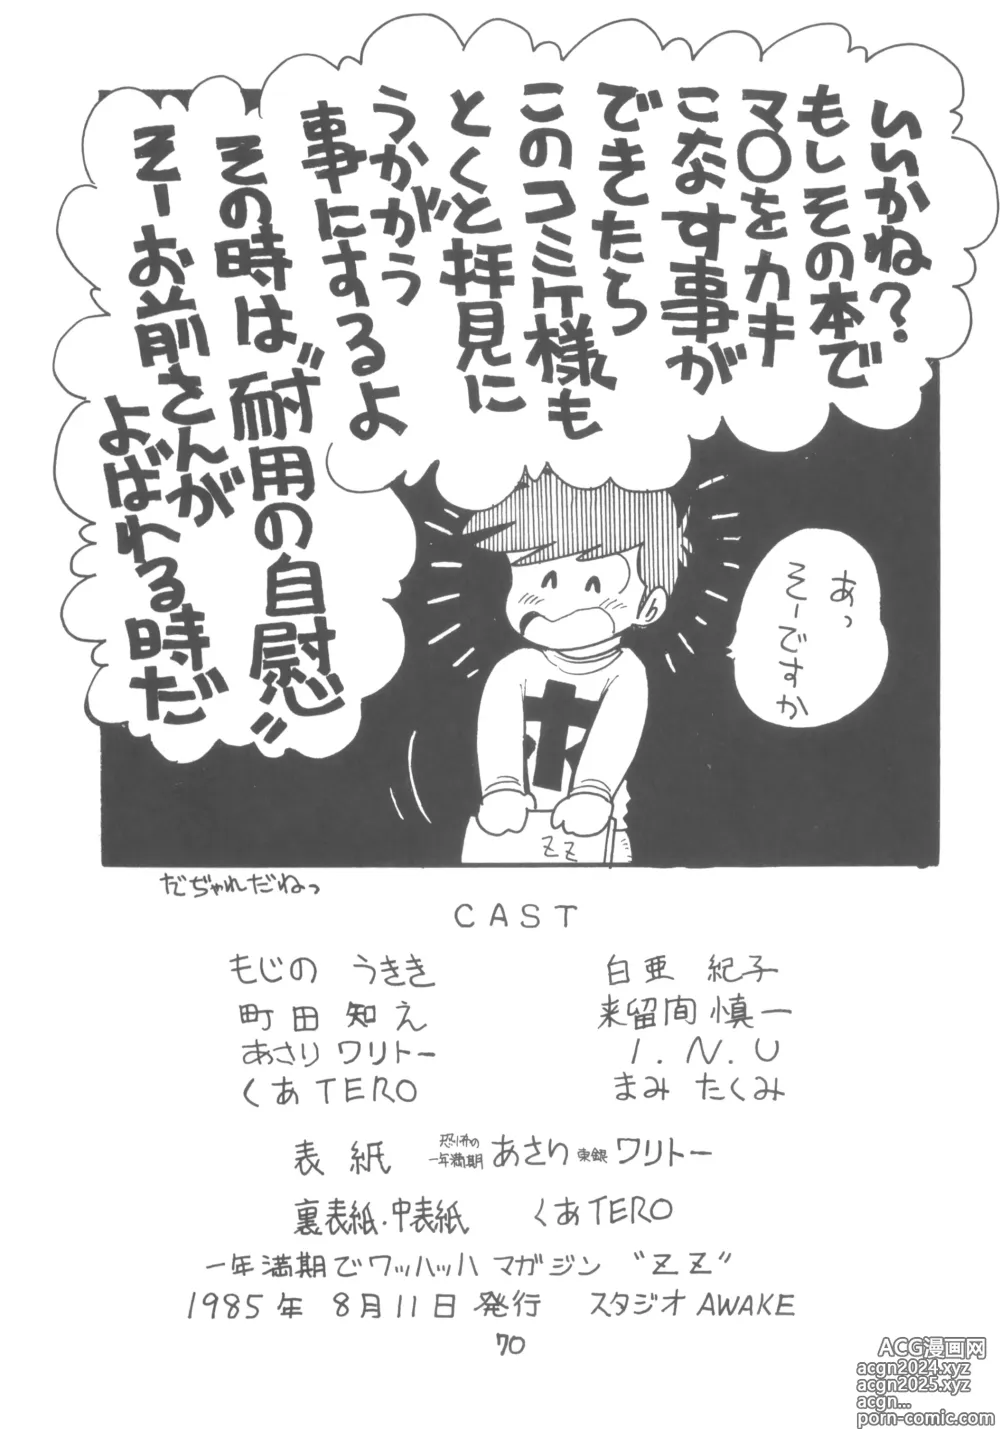 いいかね?
もしその本で
マ〇をカキ
こなす事が
できたら
このコミケ様も
とくと拝見に
うかがう
事にするよ
その時は"耐用の自慰"
そーお前さんが
よばれる時だ
あっ
そーですか
ZZ
だぢゃれだねっ
CAST
もじの うきき
白亜 紀子
町田 知え
来留間 慎一
あさり ワリトー
I.N.U
くあTERO
まみ たくみ
表紙 恐怖の一年満期 あさり 東銀 ワリトー
裏表紙・中表紙 くあTERO
一年満期でワッハッハ マガジン "ZZ"
1985年 8月11日 発行 スタジオ AWAKE
70
ACG漫画网
acgn2024.xyz
acgn2025.xyz
acgn...
porn-comic.com